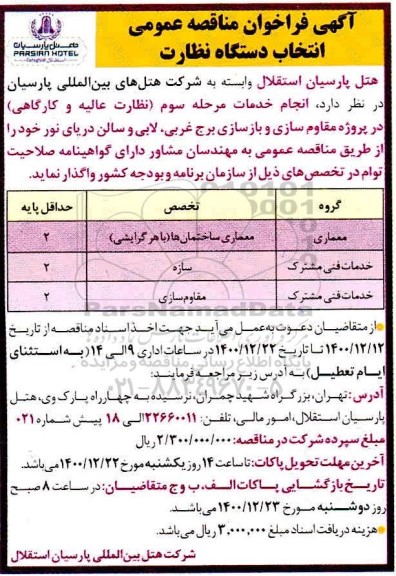 آگهی فراخوان مناقصه عمومی
انتخاب دستگاه نظارت
هتل پارسیان
PARSIAN HOTEL
Esteghlal استقلال
هتل پارسیان استقلال وابسته به شرکت هتل‌های بین‌المللی پارسیان
در نظر دارد، انجام خدمات مرحله سوم (نظارت عالیه و کارگاهی)
در پروژه مقاوم سازی و بازسازی برج غربی، لابی و سالن دریای نور خود را
از طریق مناقصه عمومی به مهندسان مشاور دارای گواهینامه صلاحیت
توام در تخصص‌های ذیل از سازمان برنامه و بودجه کشور واگذار نماید.
گروه تخصص حداقل پایه
معماری معماری ساختمان‌ها (با هر گرایشی) ۲
خدمات فنی مشترک سازه ۲
خدمات فنی مشترک مقاوم‌سازی ۲
از متقاضیان دعوت به عمل می‌آید جهت اخذ اسناد مناقصه از تاریخ
۱۴۰۰/۱۲/۱۲ تا تاریخ ۱۴۰۰/۱۲/۲۲ در ساعات اداری ۹ الی ۱۴ (به استثنای
ایام تعطیل) به آدرس زیر مراجعه فرمایند.
آدرس: تهران، بزرگراه شهید چمران، نرسیده به چهارراه پارک وی، هتل
پارسیان استقلال، امور مالی، تلفن: ۲۲۶۶۰۰۱۱ الی ۱۸ پیش شماره ۰۲۱
مبلغ سپرده شرکت در مناقصه: ۲/۳۰۰/۰۰۰/۰۰۰ ریال
آخرین مهلت تحویل پاکات: تا ساعت ۱۴ روز یکشنبه مورخ ۱۴۰۰/۱۲/۲۲ می‌باشد.
تاریخ بازگشایی پاکات الف، ب و ج متقاضیان: در ساعت ۸ صبح
روز دوشنبه مورخ ۱۴۰۰/۱۲/۲۳ می‌باشد.
هزینه دریافت اسناد مبلغ ۳,۰۰۰,۰۰۰ ریال می‌باشد.
شرکت هتل بین‌المللی پارسیان استقلال
ParsNamadData
پایگاه اطلاع رسانی مناقصه و مزایده
۰۲۱-۸۸۳۴۹۶۷۰-۵